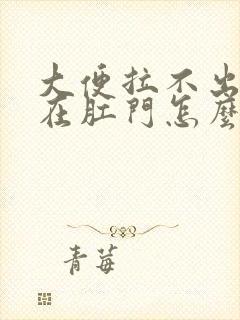 大便拉不出
在肛門怎麼
青莓